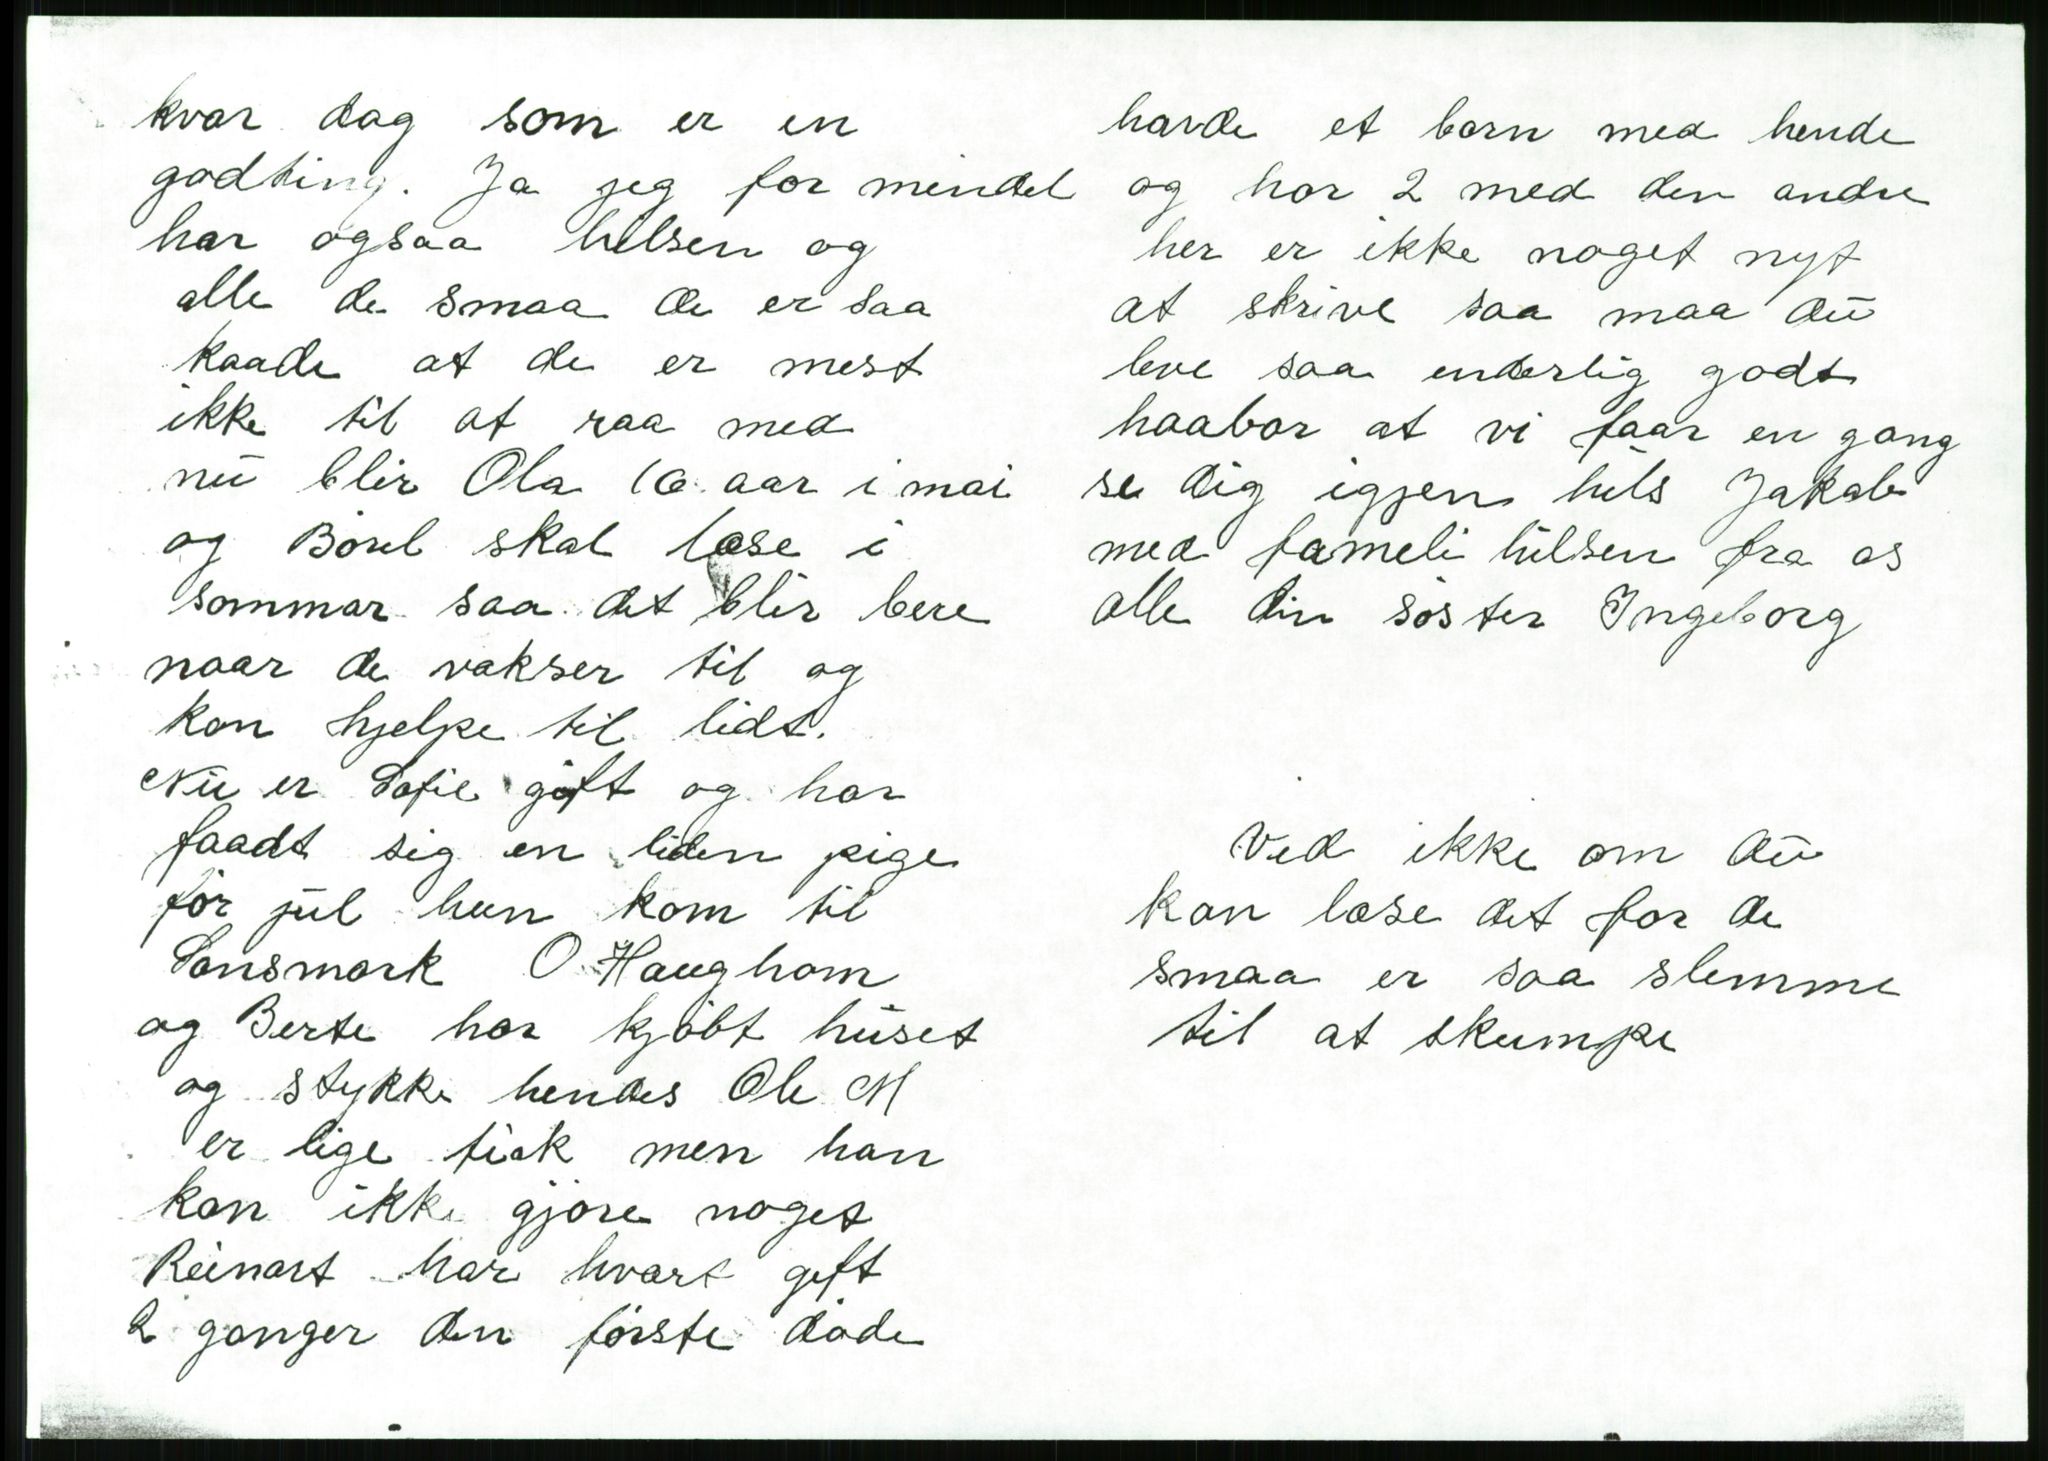 kvar dag som er en
godting. Ja jeg for mindel
har ogsaa helsen og
alle de smaa de er saa
kaade at de er mest
ikke til at raa med
nu blir Ola 10 aar i mai
og Boril skal læse i
sommar saa det blir bere
naar de vakser til og
kan hjelpe til lidt.
Nu er Sofie gift og har
faadt sig en liden pige
før jul hun kom til
Sansmark O Haughom
og Berte har kjøbt huset
og stykke hendes Ole M
er lige frisk men han
kan ikke gjøre noget
Reinart har hvart gift
2 ganger den første døde
havde et barn med hende
og har 2 med den andre
her er ikke noget nyt
at skrive saa maa du
leve saa enderlig godt
haabar at vi faar en gang
se dig igjen hils Jakob
med fameli hilsen fra os
alle din søster Ingeborg
Ved ikke om du
kan læse det for de
smaa er saa slemme
til at skumpe